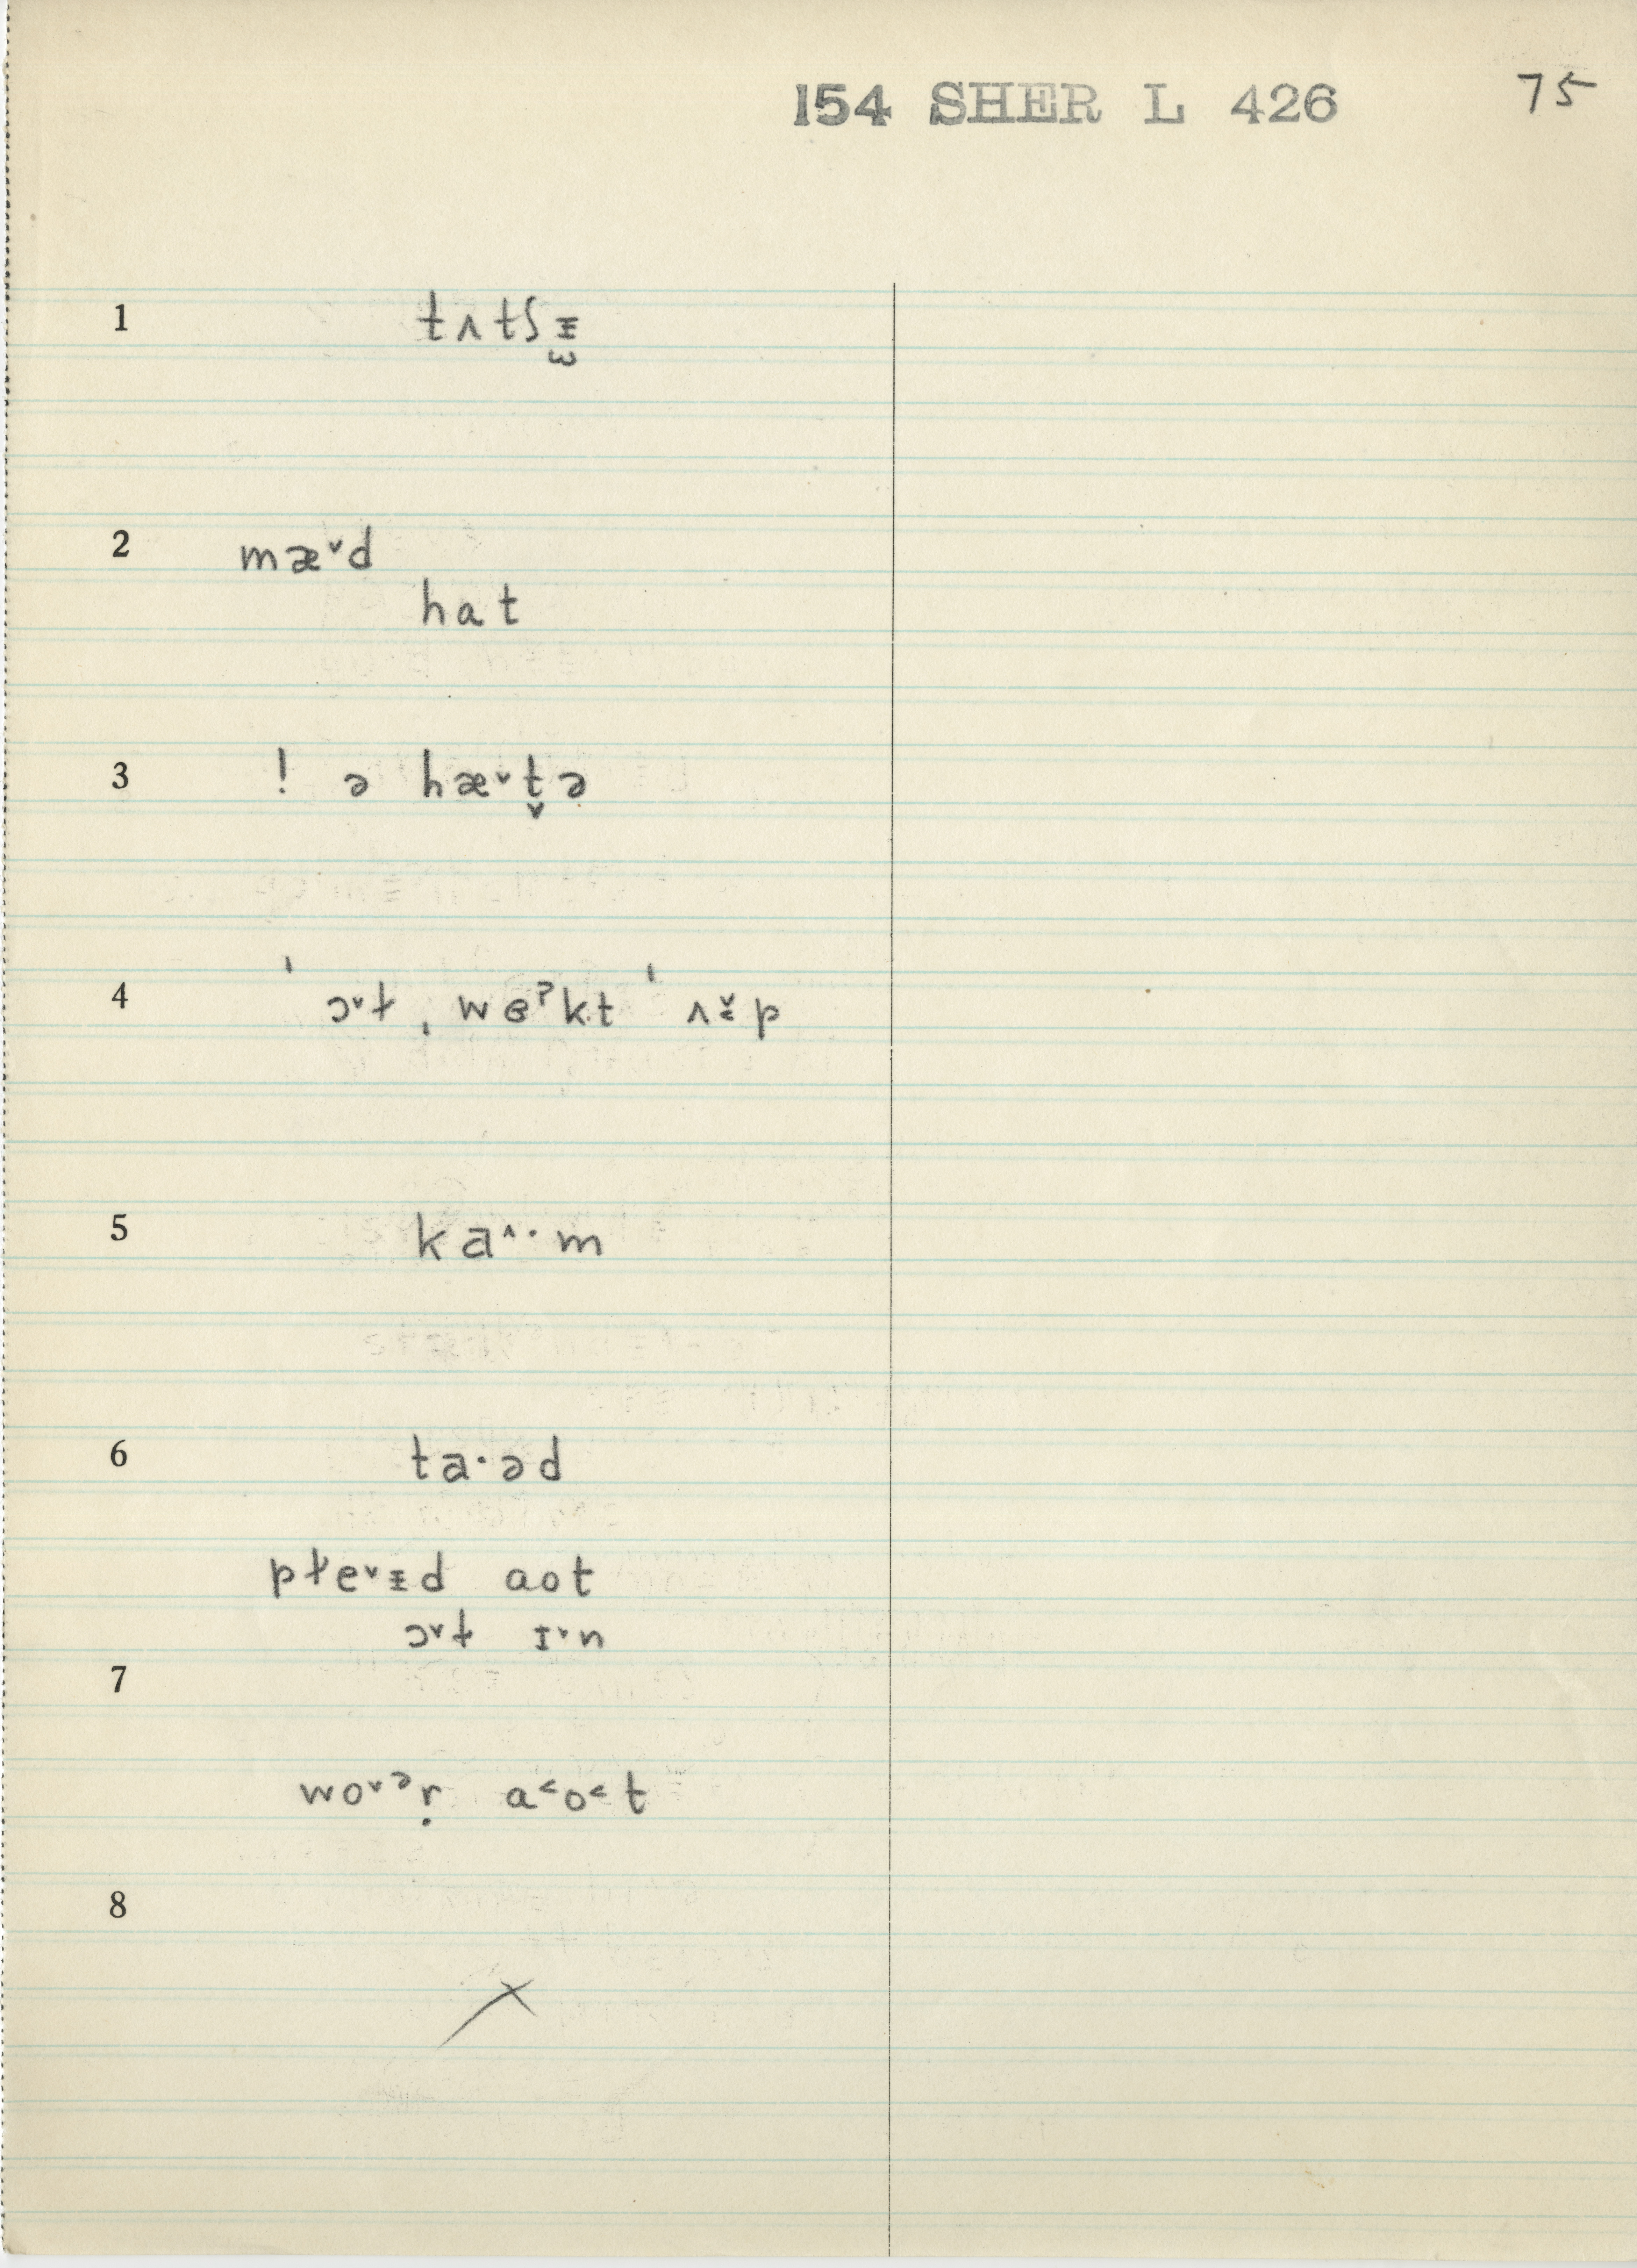 154 SHER L 426 75
1 tʌtʃᵻ̫
2 mæ˅d
hat
3 ! ə hæ˅t̬ə
4 ˈɔ˅ɫ ˌwɞˀkt ˈʌ˅̵p
5 ka˄·m
6 ta·əd
pɫe˅ᵻd aot
ɔ˅ɫ ɪ˅n
7
wo˅ᵊṛ a˂o˂t
8